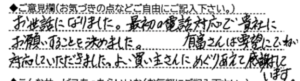 ◆ご意見欄(お気づきの点などご自由にご記入下さい。)
お世話になりました。最初の電話対応で貴社に
お願いすることを決めました。 有富さんは希望にてねい
対応していただきました。よい買い主さんにめぐりあえて感謝して
います。